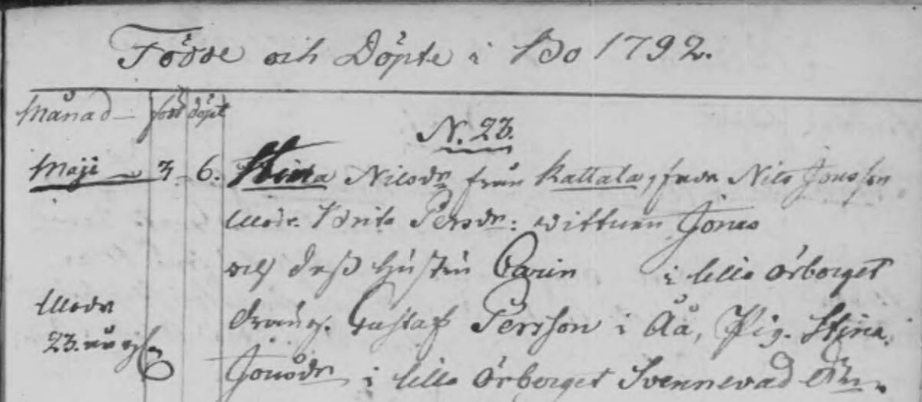 Födde och Döpte i Bo 1792.
Månad född döpt
N. 23.
Maji 3. 6. Stina Nilsdr från Kattala, fadr Nils Jonsson
Modr. Brita Persdr: wittnen Jonas
och dess hustru Carin i lilla Örborget
Modr
dräng. Gustaf Persson i Åå, Pig. Stina
23. år
Jonsdr i lilla Örborget Svennevad